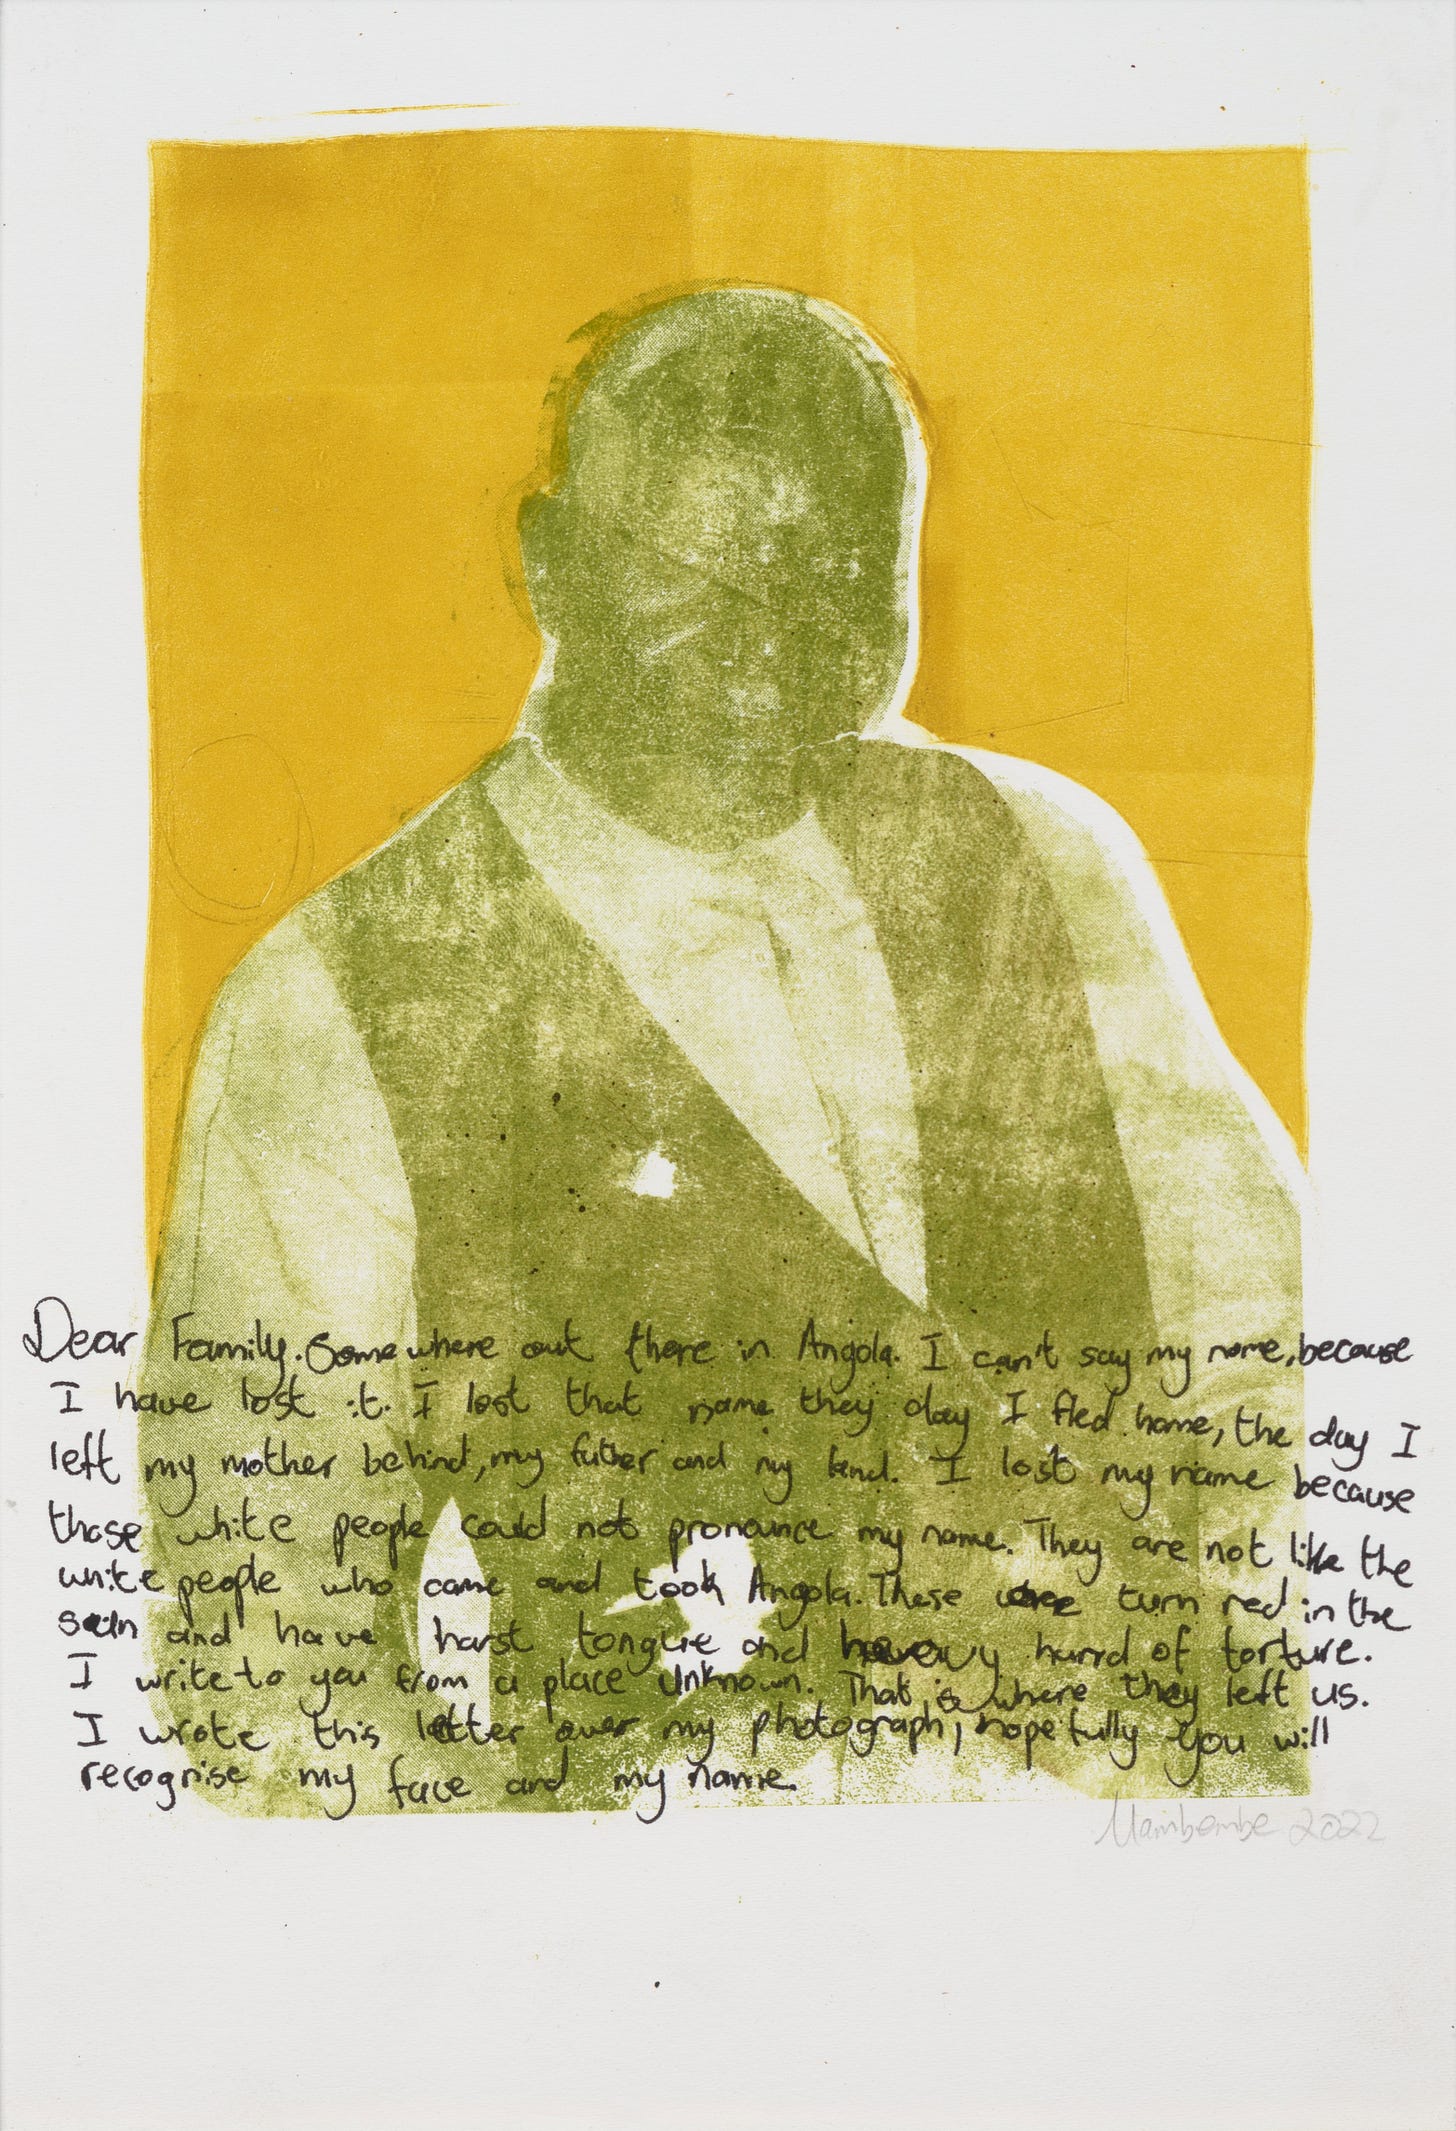 Dear Family. Somewhere out there in Angola. I can't say my name, because
I have lost it. I lost that name they day I fled home, the day I
left my mother behind, my father and my land. I lost my name because
those white people could not pronounce my name. They are not like the
white people who came and took Angola. These turn red in the
and have harst tongue and heavy hand of torture.
I write to you from a place unknown. That is where they left us.
I wrote this letter over my photograph, hopefully you will
recognise my face and my name.
2022